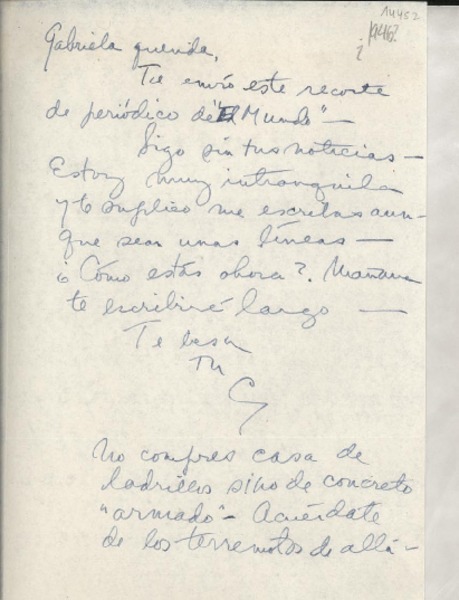 14452
1946?
Gabriela querida,
Te envío este recorte
de periódico de "El Mundo" —
Sigo sin tus noticias —
Estoy muy intranquila
y te suplico me escribas aun-
que sean unas líneas —
¿Cómo estás ahora?. Mañana
te escribiré largo —
Te besa
tu
C
No compres casa de
ladrillos sino de concreto
"armado" — Acuérdate
de los terremotos de allá —